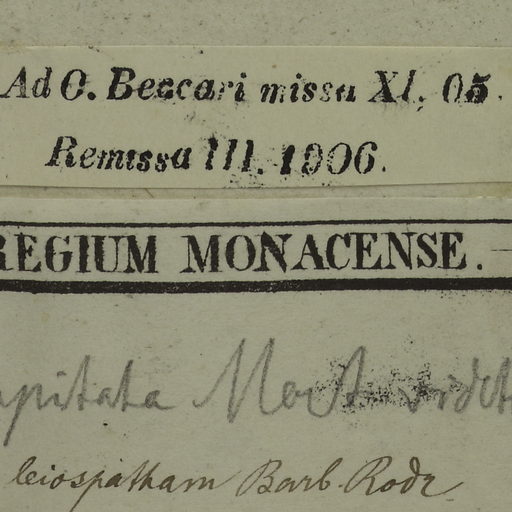 Ad O. Beccari missa XI. 05.
Remissa III. 1906.
REGIUM MONACENSE.
apitata Mart
leiospatham Barb. Rodr.